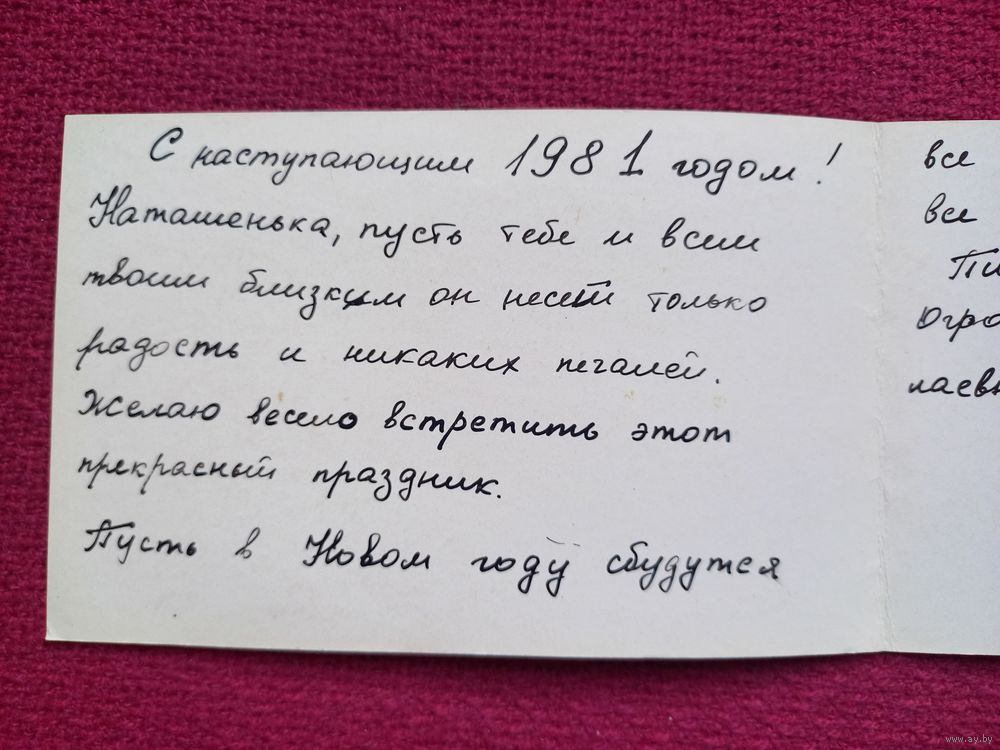 С наступающим 1981 годом!
Наташенька, пусть тебе и всем
твоим близким он несёт только
радость и никаких печалей.
Желаю весело встретить этот
прекрасный праздник.
Пусть в Новом году сбудутся
все
все
Пи
Огро
лаевн
www.ay.by